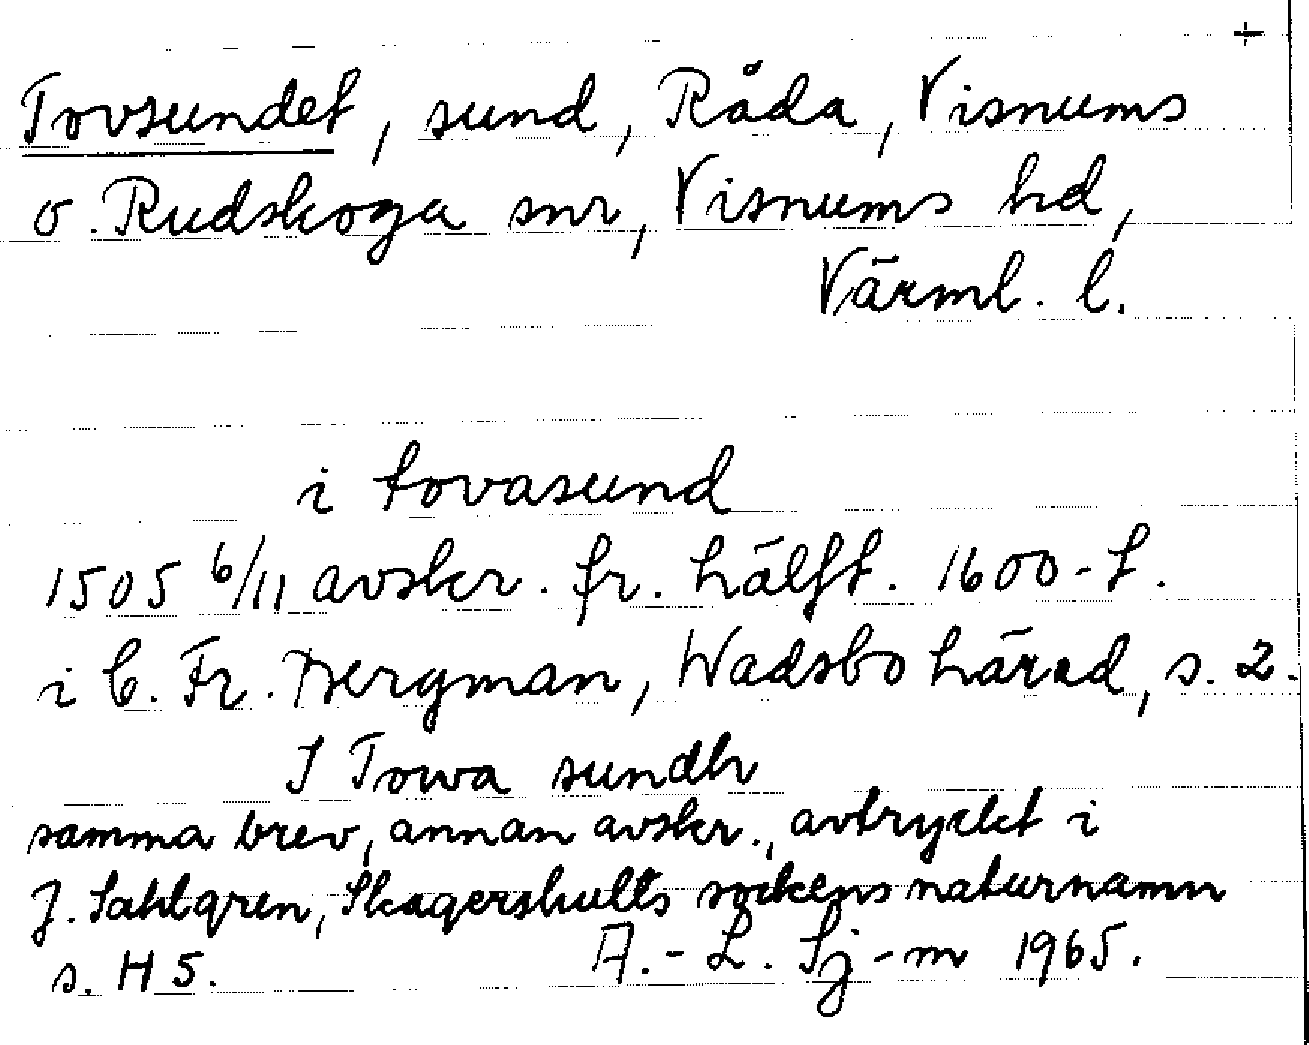 +
Tovsundet, sund, Råda, Visnums
o. Rudskoga snr, Visnums hd,
Värml. l.
i tovasund
1505 6/11 avskr. fr. hälft. 1600-t.
i C. Fr. Bergman, Wadsbo härad, s. 2.
I Towa sundh
samma brev, annan avskr., avtryckt i
J. Sahlgren, Skagershults sockens naturnamn
s. H 5. A.-L. Sj-m 1965.